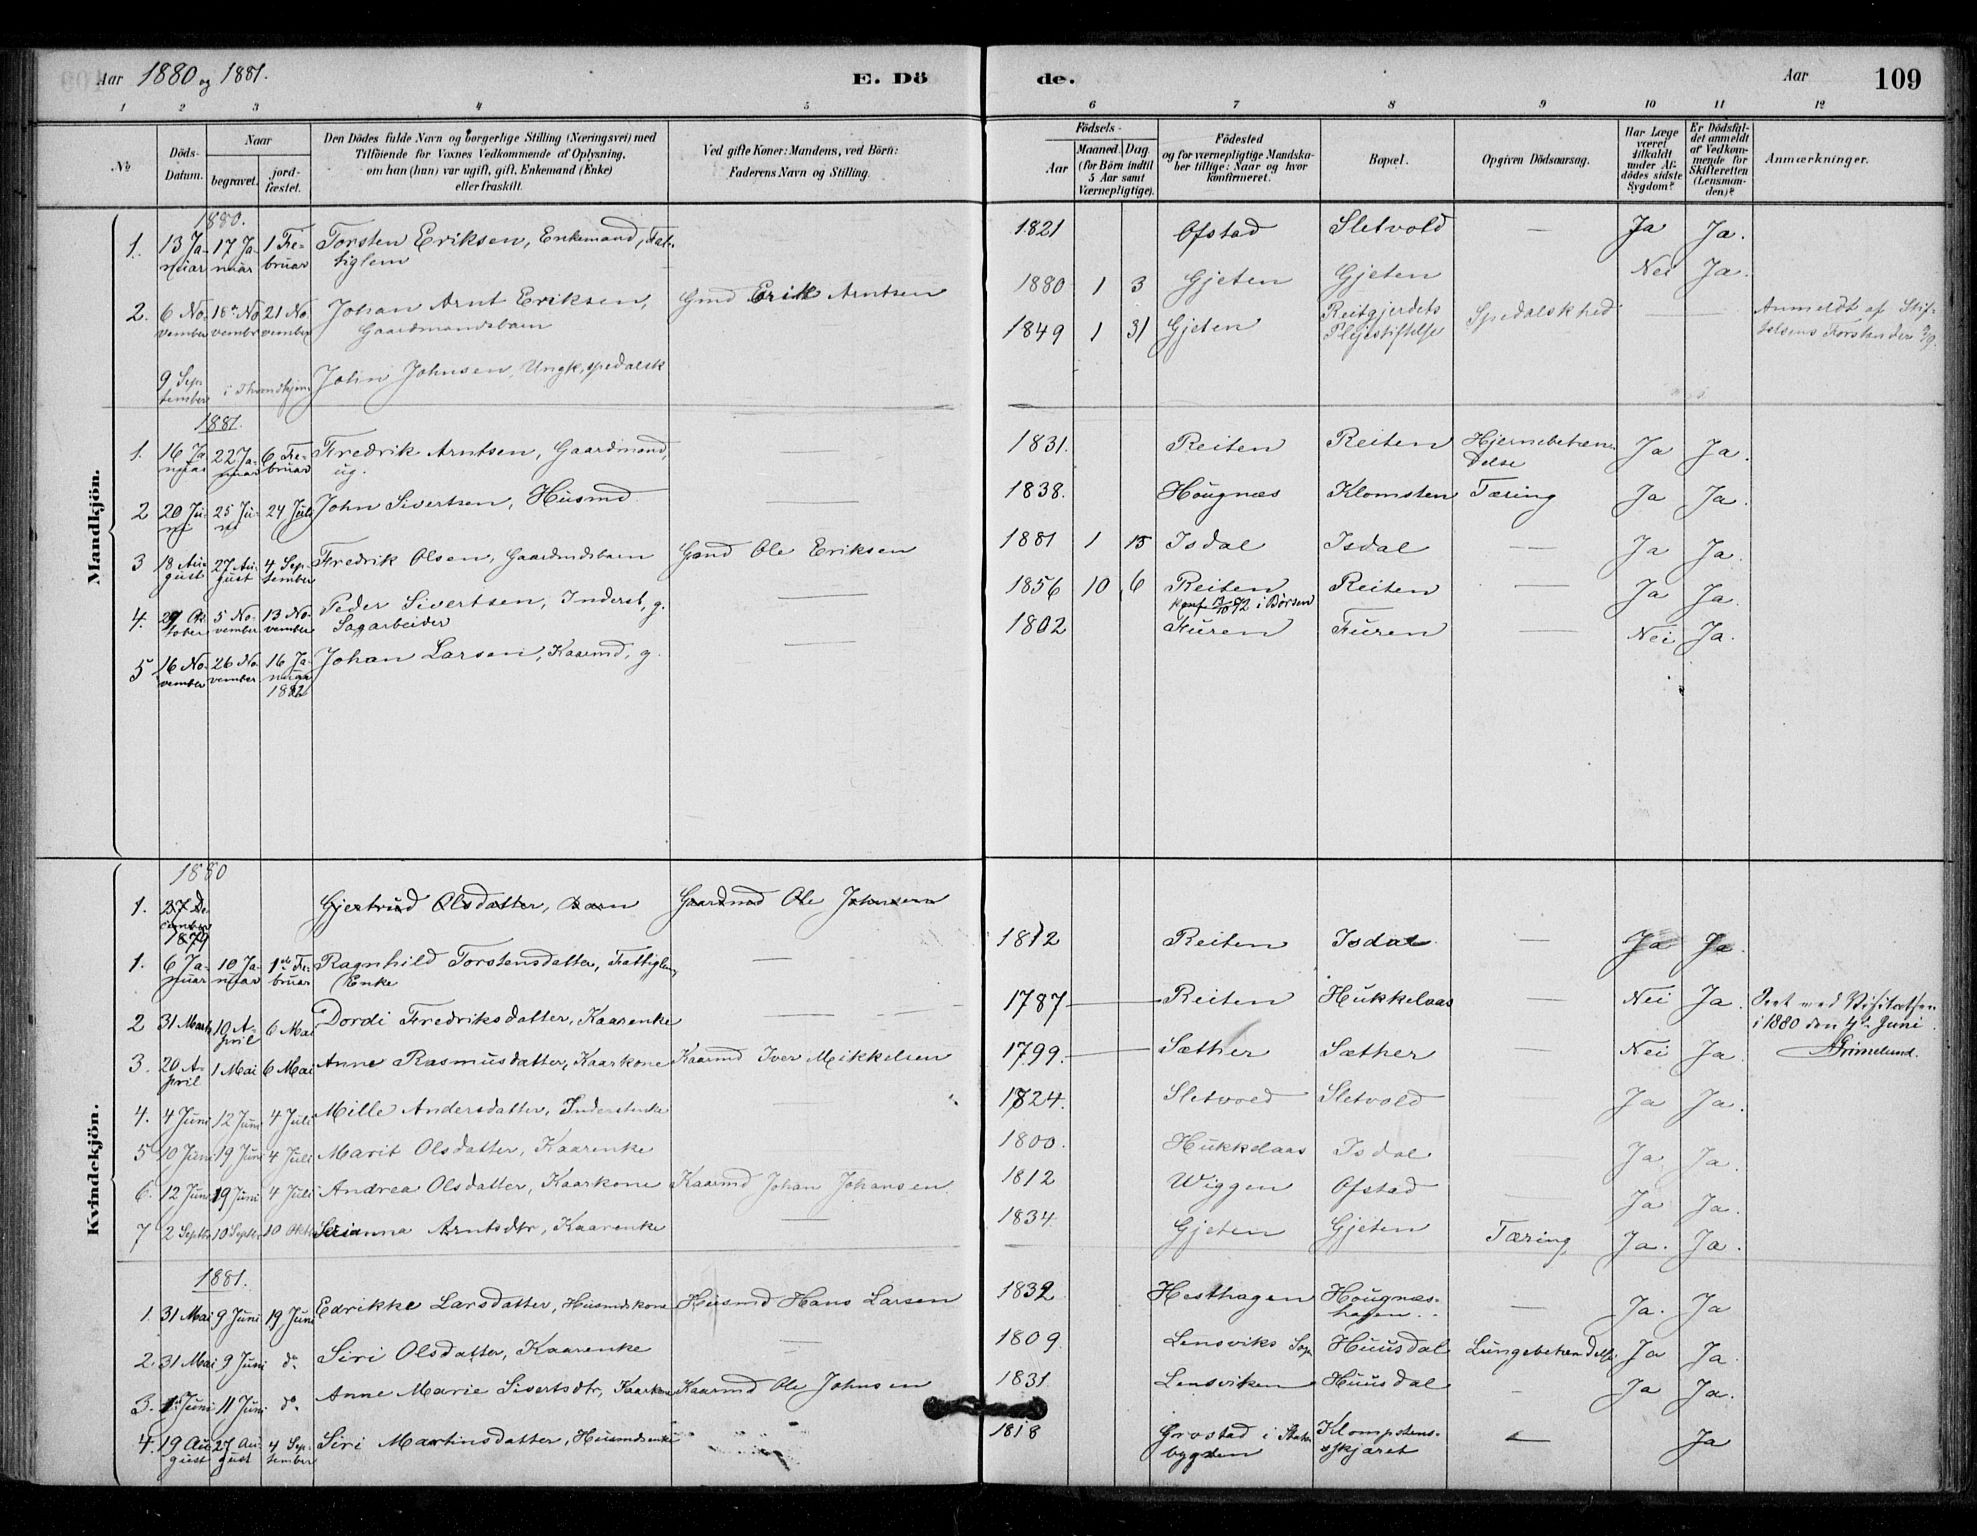 Aar 1880 og 1881.
E. Döde.
Aar
109
1 2 3 4 5 6 7 8 9 10 11 12
No
Döds-Datum.
Naar
begravet.
jordfæstet.
Den Dödes fulde Navn og borgerlige Stilling (Næringsvei) med
Tilföiende for Voxnes Vedkommende af Oplysning,
om han (hun) var ugift, gift, Enkemand (Enke)
eller fraskilt.
Ved gifte Koner: Mandens, ved Börn:
Faderens Navn og Stilling.
Födsels-
Aar
Maaned. Dag.
(for Börn indtil
5 Aar samt
Værnepligtige).
Födested
og for værnepligtige Mandskaber tillige: Naar og hvor
konfirmeret.
Bopæl.
Opgiven Dödsaarsag.
Har Læge
været
tilkaldt
under Afdödes sidste
Sygdom?
Er Dödsfaldet anmeldt
af Vedkommende for
Skifteretten
(Lensmanden)?
Anmærkninger.
Mandkjön.
1880.
1. 13 Januar 17 Januar 1 Februar Torsten Eriksen, Enkemand, Fattiglem — 1821 Ofstad Sletvold — Ja Ja.
2. 6 November 18de November 21 November Johan Arnt Eriksen, Gaardmandsbarn Gmd Erik Arntsen 1880 1 3 Gjeten Gjeten Nei Ja.
9 September i Throndhjem John Johnsen, Ungk, spedalsk 1849 1 31 Gjeten Reitgjerdets Plejestiftelse Spedalskhed — — Anmeldt af Stiftelsens Forstander
1881.
1. 16 Januar 22 Januar 6 Februar Fredrik Arntsen, Gaardmand, ug. — 1831. Reiten Reiten Hjernebetændelse Ja Ja.
2 20 Juni 25 Juni 24 Juli John Sivertsen, Husmd — 1838. Hougnæs Klomsten Tæring Ja Ja.
3 18 August 27 August 4 September Fredrik Olsen, Gaardmdsbarn Gmd Ole Eriksen 1881 1 15 Isdal Isdal — Ja Ja.
4. 29 Oktober 5 November 13 November Peder Sivertsen, Inderst, g. Sagarbeider — 1856 10 6 Reiten Reiten — Ja Ja.
i Börsen
5 16 November 26 November 16 Januar 1882 Johan Larsen, Kaarmd, g. — 1802 Furen Furen — Nei Ja.
Kvindekjön.
1880
1. 27 December 1879 Gjertrud Olsdatter, Barn Gaardmd Ole Johnsen
1. 6 Januar 10 Januar 1ste Februar Ragnhild Torstensdatter, Fattiglem, Enke — 1812 Reiten Isdal — Ja Ja.
2 31 Marts 10 April 6 Mai Dordi Fredriksdatter, Kaarenke — 1787 Reiten Hukkelaas — Nei Ja. Seet ved Visitatsen i 1880 den 4de Juni. Grimelund.
3. 20 April 1 Mai 6 Mai Anne Rasmusdatter, Kaarkone Kaarmd Iver Mikkelsen 1799. Sæther Sæther — Nei Ja.
4. 4 Juni 12 Juni 4 Juli Mille Andersdatter, Inderstenke — 1824. Sletvold Sletvold — Ja Ja.
5 10 Juni 19 Juni 4 Juli Marit Olsdatter, Kaarenke — 1800. Hukkelaas Isdal — Ja Ja.
6. 12 Juni 19 Juni 4 Juli Andrea Olsdatter, Kaarkone Kaarmd Johan Johansen. 1812 Wiggen Ofstad — Ja Ja.
7 2 Septbr 10 Septbr 10 Oktbr Serianna Arntsdtr, Kaarenke — 1834. Gjeten Gjeten Tæring Ja. Ja.
1881.
1. 31 Mai 9 Juni 19 Juni Edrikke Larsdatter, Husmdskone Husmd Hans Larsen 1832 Hesthagen Hougnæshagen — Ja. Ja
2. 31 Mai 9 Juni do Siri Olsdatter, Kaarenke — 1809 Lensviks Sogn Huusdal Lungebetændelse Ja Ja.
3. 1 Juni 11 Juni do Anne Marie Sivertsdtr, Kaarkone Kaarmd Ole Johnsen 1831 Lensviken Huusdal — Ja Ja.
4. 19 August 27 August 4 September Siri Martinsdatter, Husmdsenke 1818 Grostad i Stadsbygden Klompstensskjæret — Ja